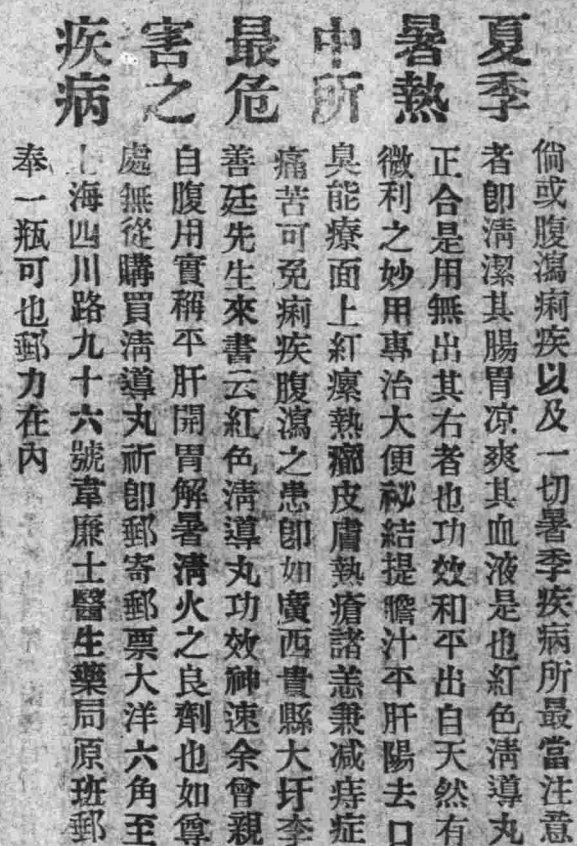 夏季
暑熱
中所
最危
害之
疾病
倘或腹瀉痢疾以及一切暑季疾病所最當注意
者卽淸潔其腸胃凉爽其血液是也紅色淸導丸
正合是用無出其右者也功效和平出自天然有
微利之妙用專治大便祕結提膽汁平肝陽去口
臭能療面上紅瘰熱癤皮膚熱瘡諸恙兼减痔症
痛苦可免痢疾腹瀉之患卽如廣西貴縣大圩李
善廷先生來書云紅色淸導丸功效神速余曾親
自腹用實稱平肝開胃解暑淸火之良劑也如尊
處無從購買淸導丸祈卽郵寄郵票大洋六角至
上海四川路九十六號韋廉士醫生藥局原班郵
奉一瓶可也郵力在內